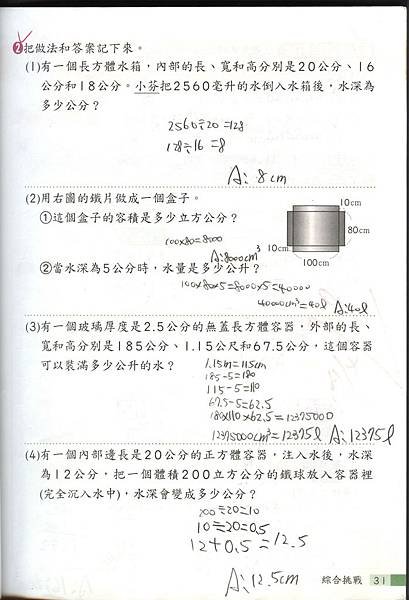 ❷把做法和答案記下來。
(1)有一個長方體水箱，內部的長、寬和高分別是20公分、16
公分和18公分。小芬把2560毫升的水倒入水箱後，水深為
多少公分？
2560÷20=128
128÷16=8
A: 8cm
(2)用右圖的鐵片做成一個盒子。
①這個盒子的容積是多少立方公分？
10cm
80cm
10cm
100cm
100×80=8000
A: 8000cm³
②當水深為5公分時，水量是多少公升？
100×80×5=8000×5=40000
40000cm³=40l A: 40l
(3)有一個玻璃厚度是2.5公分的無蓋長方體容器，外部的長、
寬和高分別是185公分、1.15公尺和67.5公分，這個容器
可以裝滿多少公升的水？
1.15m=115cm
185-5=180
115-5=110
67.5-5=62.5
180×110×62.5=12375000
12375000cm³=12375l A: 12375l
(4)有一個內部邊長是20公分的正方體容器，注入水後，水深
為12公分，把一個體積200立方公分的鐵球放入容器裡
(完全沉入水中)，水深會變成多少公分？
200÷20=10
10÷20=0.5
12+0.5=12.5
A: 12.5cm
綜合挑戰 31